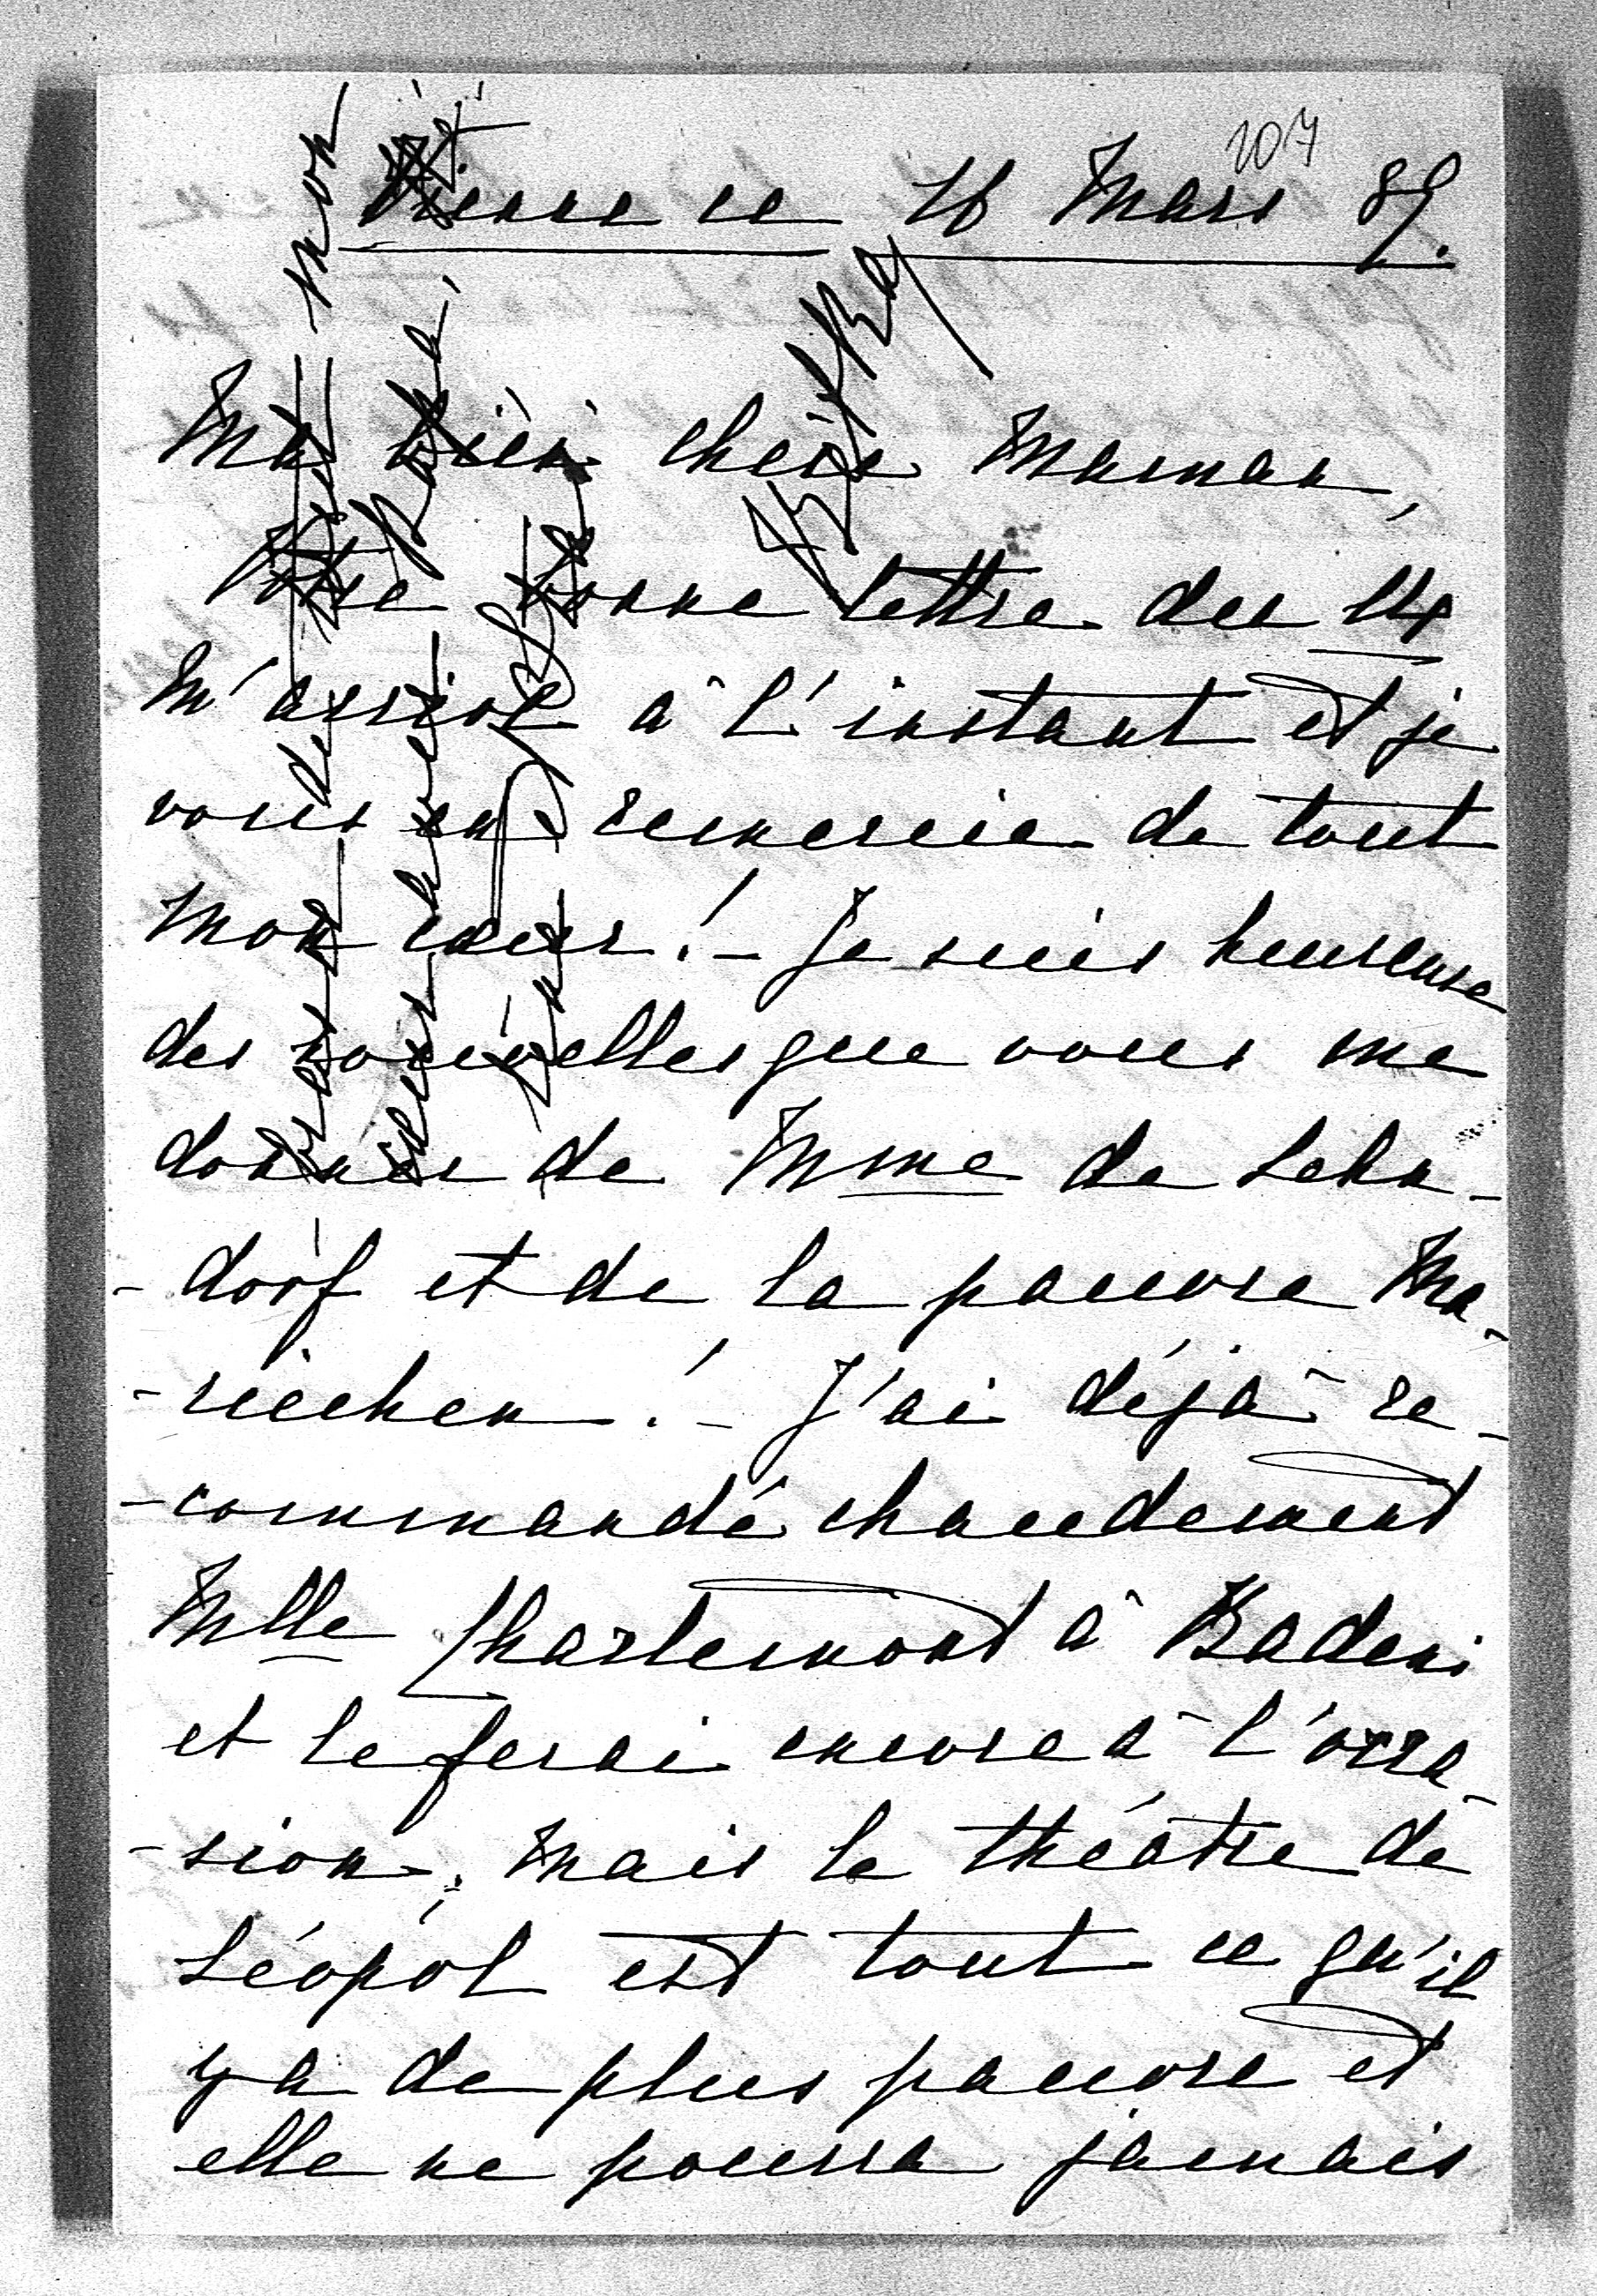 107
Vienne ce 16 Mars 89.
Ma bien chère Maman,
Votre bonne lettre du 14
m'arrive à l'instant et je
vous en remercie de tout
mon cœur! – Je suis heureuse
des nouvelles que vous me
donnez de Mme de Lehn-
-dorf et de la pauvre Ma-
-riechen! – J'ai déjà re-
-commandé chaudement
Mlle Charlemont à Badeni
et le ferai encore à l'occa-
-sion, mais le théâtre de
Léopol est tout ce qu'il
y a de plus pauvre et
elle ne pourra jamais
mon